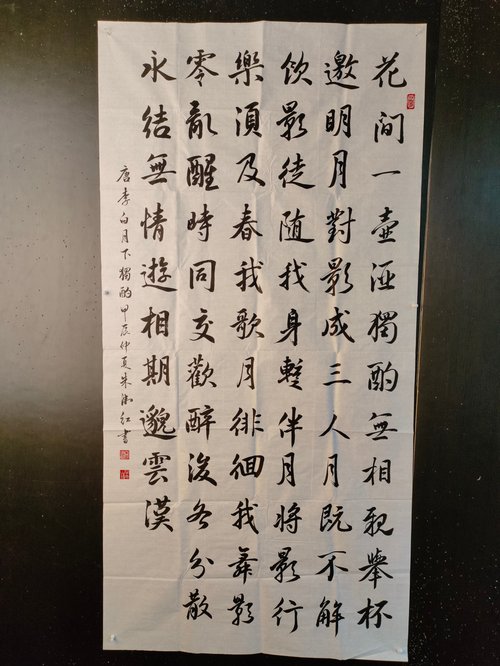 花間一壺酒獨酌無相親舉杯
邀明月對影成三人月既不解
飲影徒隨我身暫伴月將影行
樂須及春我歌月徘徊我舞影
零亂醒時同交歡醉後各分散
永結無情遊相期邈雲漢
唐李白月下獨酌甲辰仲夏朱红書